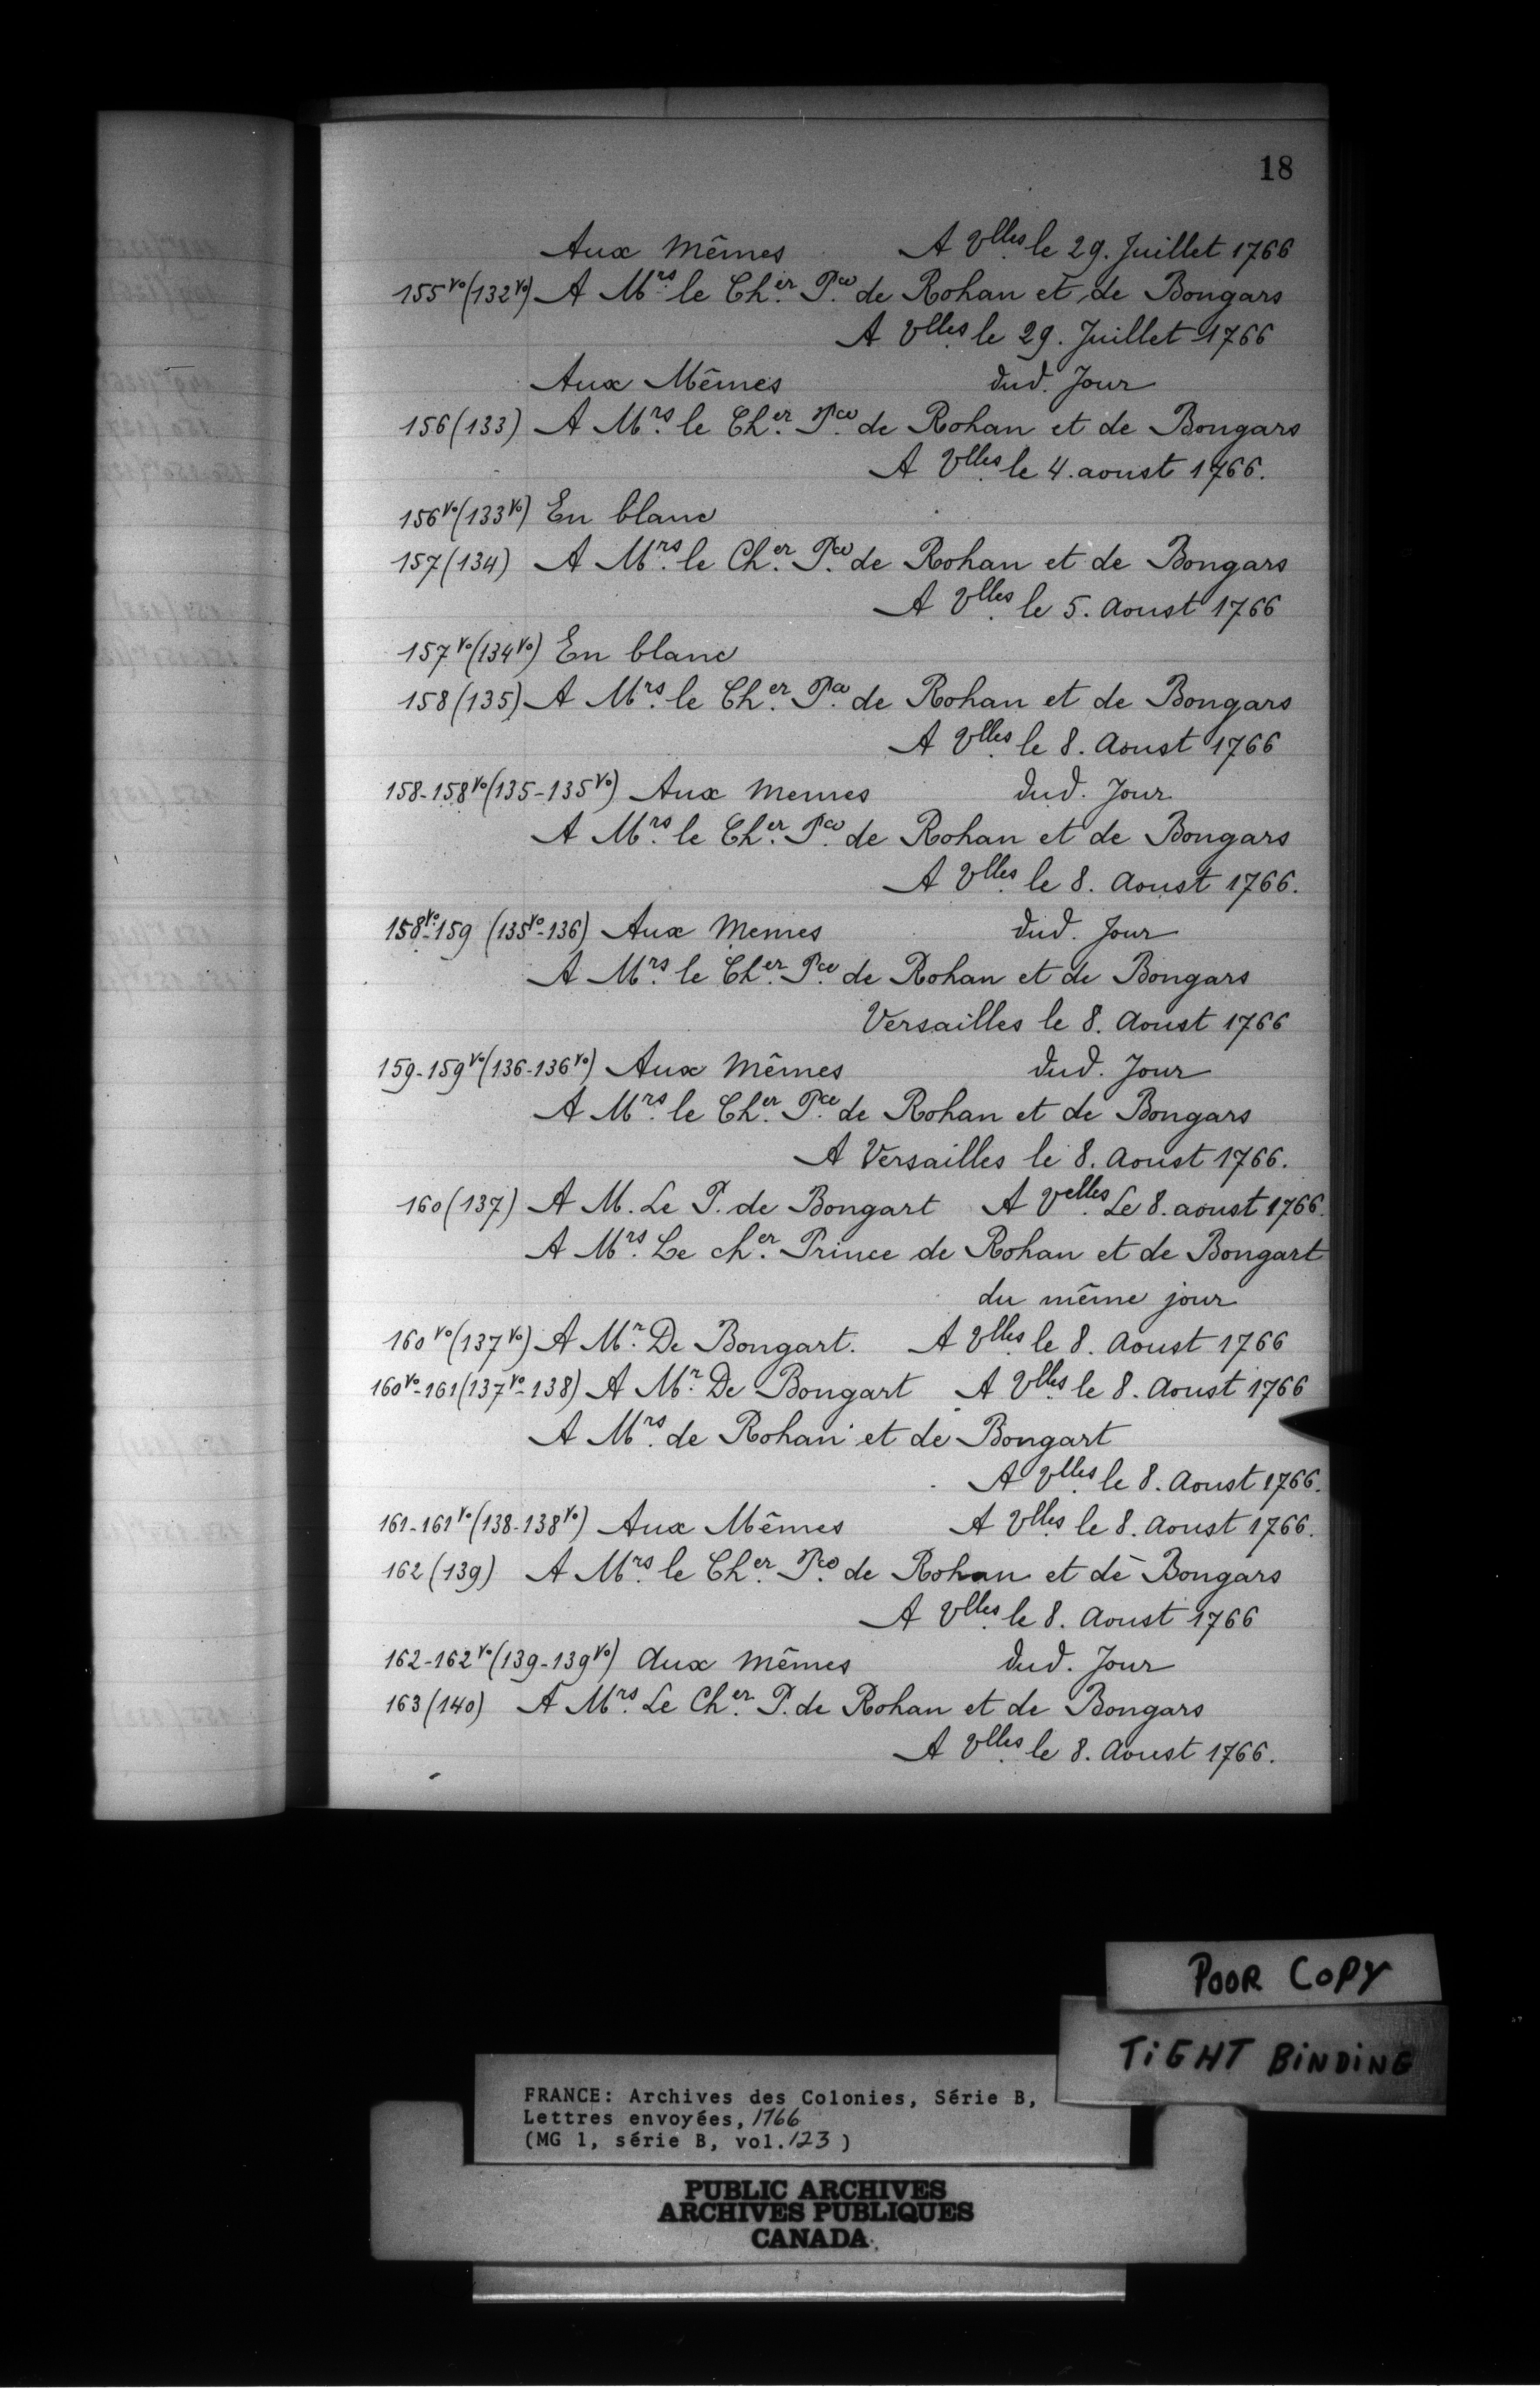 18
Aux Mêmes A Vlles le 29. Juillet 1766
155vo(132vo) A Mrs. le Cher. Pce. de Rohan et de Bongars
A Vlles le 29. Juillet 1766
Aux Mêmes dud. Jour
156(133) A Mrs. le Cher. Pce. de Rohan et de Bongars
A Vlles. le 4. aoust 1766.
156vo(133vo) En blanc
157(134) A Mrs. le Cher. Pce. de Rohan et de Bongars
A Vlles. le 5. Aoust 1766
157vo(134vo) En blanc
158(135) A Mrs. le Cher. Pce. de Rohan et de Bongars
A Vlles. le 8. Aoust 1766
158-158vo(135-135vo) Aux Memes dud. Jour
A Mrs. le Cher. Pce. de Rohan et de Bongars
A Vlles. le 8. Aoust 1766.
158vo-159 (135vo-136) Aux Memes dud. Jour
A Mrs. le Cher. Pce. de Rohan et de Bongars
Versailles le 8. Aoust 1766
159-159vo(136-136vo) Aux Mêmes dud. Jour
A Mrs. le Cher. Pce. de Rohan et de Bongars
A Versailles le 8. Aoust 1766.
160(137) A M. Le P. de Bongart A Velles. Le 8. aoust 1766.
A Mrs. Le cher. Prince de Rohan et de Bongart
du même jour
160vo(137vo) A Mr. De Bongart. A Vlles. le 8. Aoust 1766
160vo-161(137vo-138) A Mr. De Bongart A Vlles. le 8. Aoust 1766
A Mrs. de Rohan et de Bongart
A Vlles. le 8. Aoust 1766.
161-161vo(138-138vo) Aux Mêmes A Vlles. le 8. Aoust 1766.
162(139) A Mrs. le Cher. Pce. de Rohan et de Bongars
A Vlles. le 8. Aoust 1766
162-162vo(139-139vo) Aux Mêmes dud. Jour
163(140) A Mrs. Le Cher. P. de Rohan et de Bongars
A Vlles. le 8. Aoust 1766.
POOR COPY
TIGHT BINDING
FRANCE: Archives des Colonies, Série B,
Lettres envoyées, 1766
(MG 1, série B, vol.123)
PUBLIC ARCHIVES
ARCHIVES PUBLIQUES
CANADA